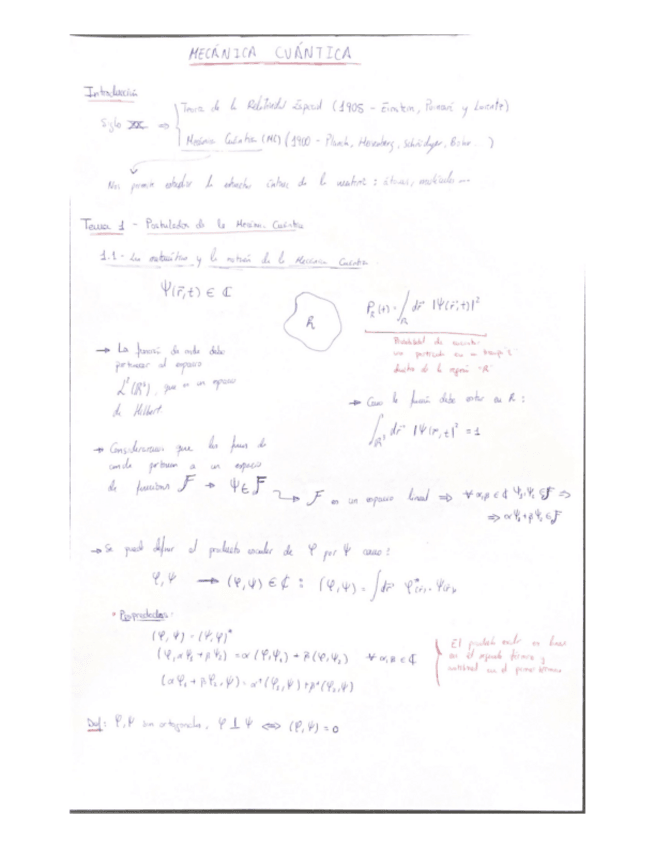 MECÁNICA CUÁNTICA
Introducción
Siglo XX ⇒ { Teoría de la Relatividad Especial (1905 - Einstein, Poincaré y Lorentz)
Mecánica Cuántica (MC) (1900 - Planck, Heisenberg, Schrödinger, Bohr...)
Nos permite estudiar la estructura íntima de la materia: átomos, moléculas...
Tema 1 - Postulados de la Mecánica Cuántica
1.1 - y la notación de la Mecánica Cuántica
Ψ(r⃗,t) ∈ ℂ
R
P_R(t) = ∫_R dr⃗ |Ψ(r⃗,t)|²
Probabilidad de encontrar
una partícula en un tiempo t
dentro de la región "R"
→ La función de onda debe
pertenecer al espacio
L²(R³), que es un espacio
de Hilbert.
→ Como la función debe estar en R:
∫_R³ dr⃗ |Ψ(r⃗,t)|² = 1
→ Consideramos que las func. de
onda pertenecen a un espacio
de funciones F → Ψ ∈ F
→ F es un espacio lineal ⇒ ∀ α,β ∈ ℂ Ψ₁,Ψ₂ ∈ F ⇒
⇒ αΨ₁+βΨ₂ ∈ F
→ Se puede definir el producto escalar de φ por Ψ como:
φ,Ψ → (φ,Ψ) ∈ ℂ : (φ,Ψ) = ∫ dr⃗ φ*(r) · Ψ(r)
* Propiedades:
(φ,Ψ) = (Ψ,φ)*
(φ,αΨ₁ + βΨ₂) = α(φ,Ψ₁) + β(φ,Ψ₂) ∀ α,β ∈ ℂ
(αφ₁ + βφ₂,Ψ) = α*(φ₁,Ψ) + β*(φ₂,Ψ)
El producto escalar es lineal
en el segundo término y
antilineal en el primer término
Def: φ,Ψ son ortogonales, φ ⊥ Ψ ⇔ (φ,Ψ) = 0